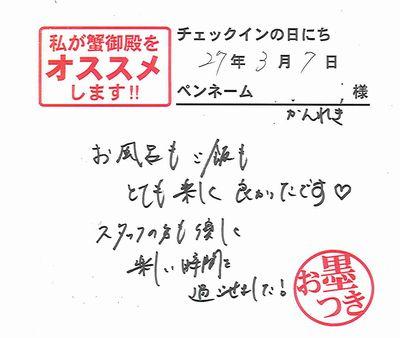 私が蟹御殿を
オススメ
します!!
チェックインの日にち
27年3月7日
ペンネーム 様
かんれき
お風呂もご飯も
とても楽しく良かったです♡
スタッフの方も優しく
楽しい時間を
過ごせました!
お墨つき